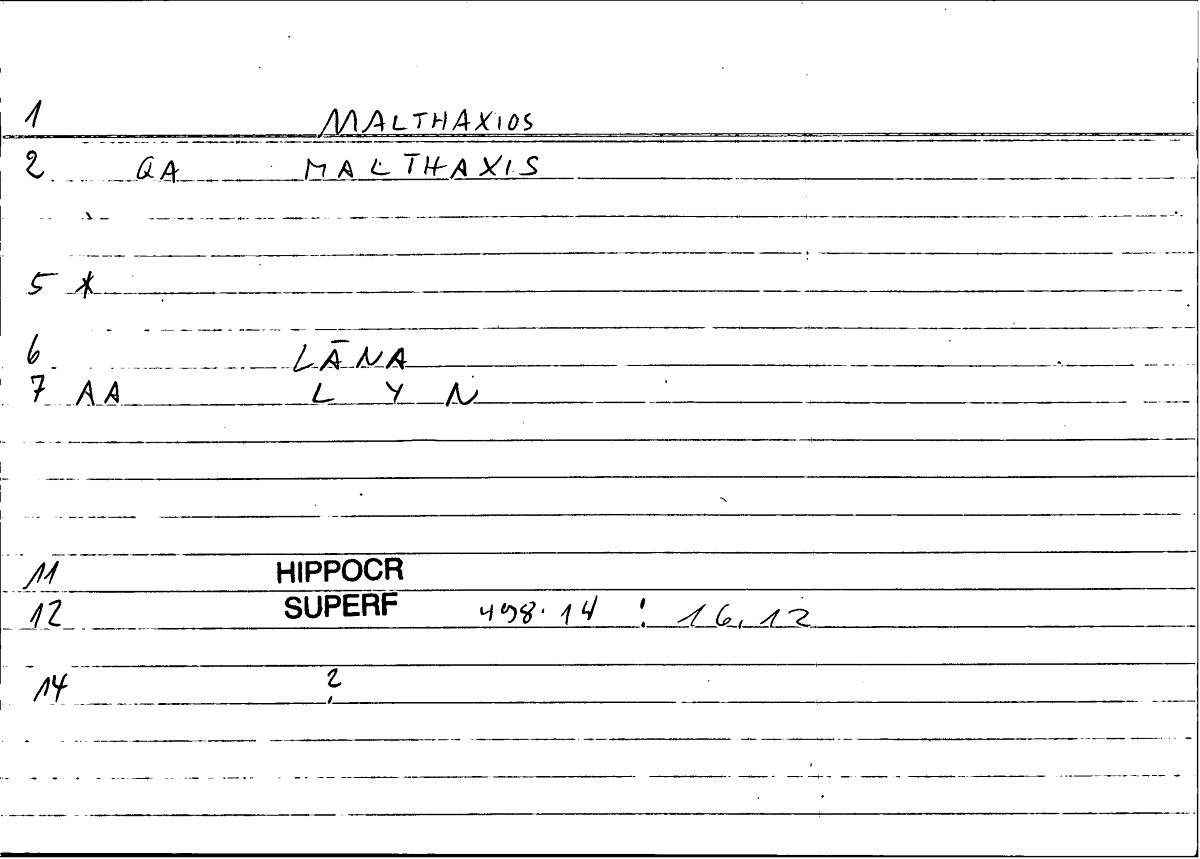 1 MALTHAXIOS
2 QA MALTHAXIS
5 *
6 LĀNA
7 AA L Y N
11 HIPPOCR
12 SUPERF 498.14 : 16.12
14 ?